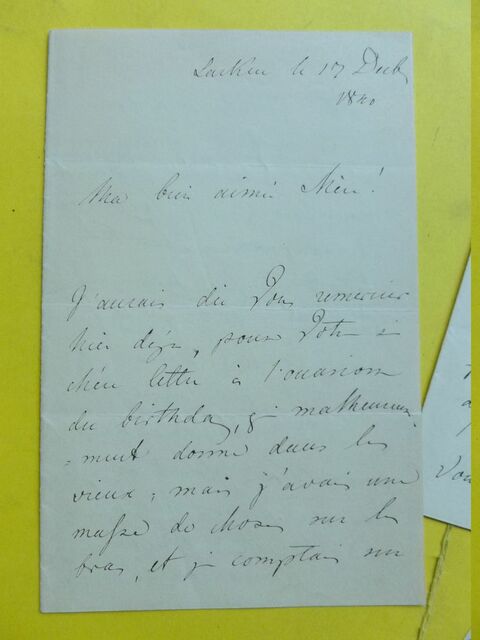 Laeken le 17 Decb
1840
Ma bien aimée Mère!
J'aurais dû Vous remercier
hier déja, pour Votre si
chère lettre à l'occasion
du birthday, qui malheureuse
=ment donne dans les
vieux; mais j'avais une
masse de choses sur les
bras, et je comptais sur